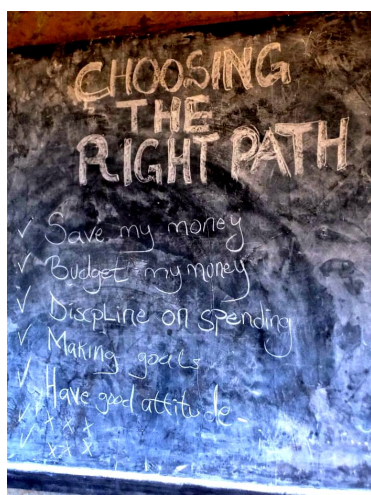 CHOOSING
THE
RIGHT PATH
✓ Save my money
✓ Budget my money
✓ Discpline on spending
✓ Making goals
✓ Have good attitude
✓ x x x
✓ x x x